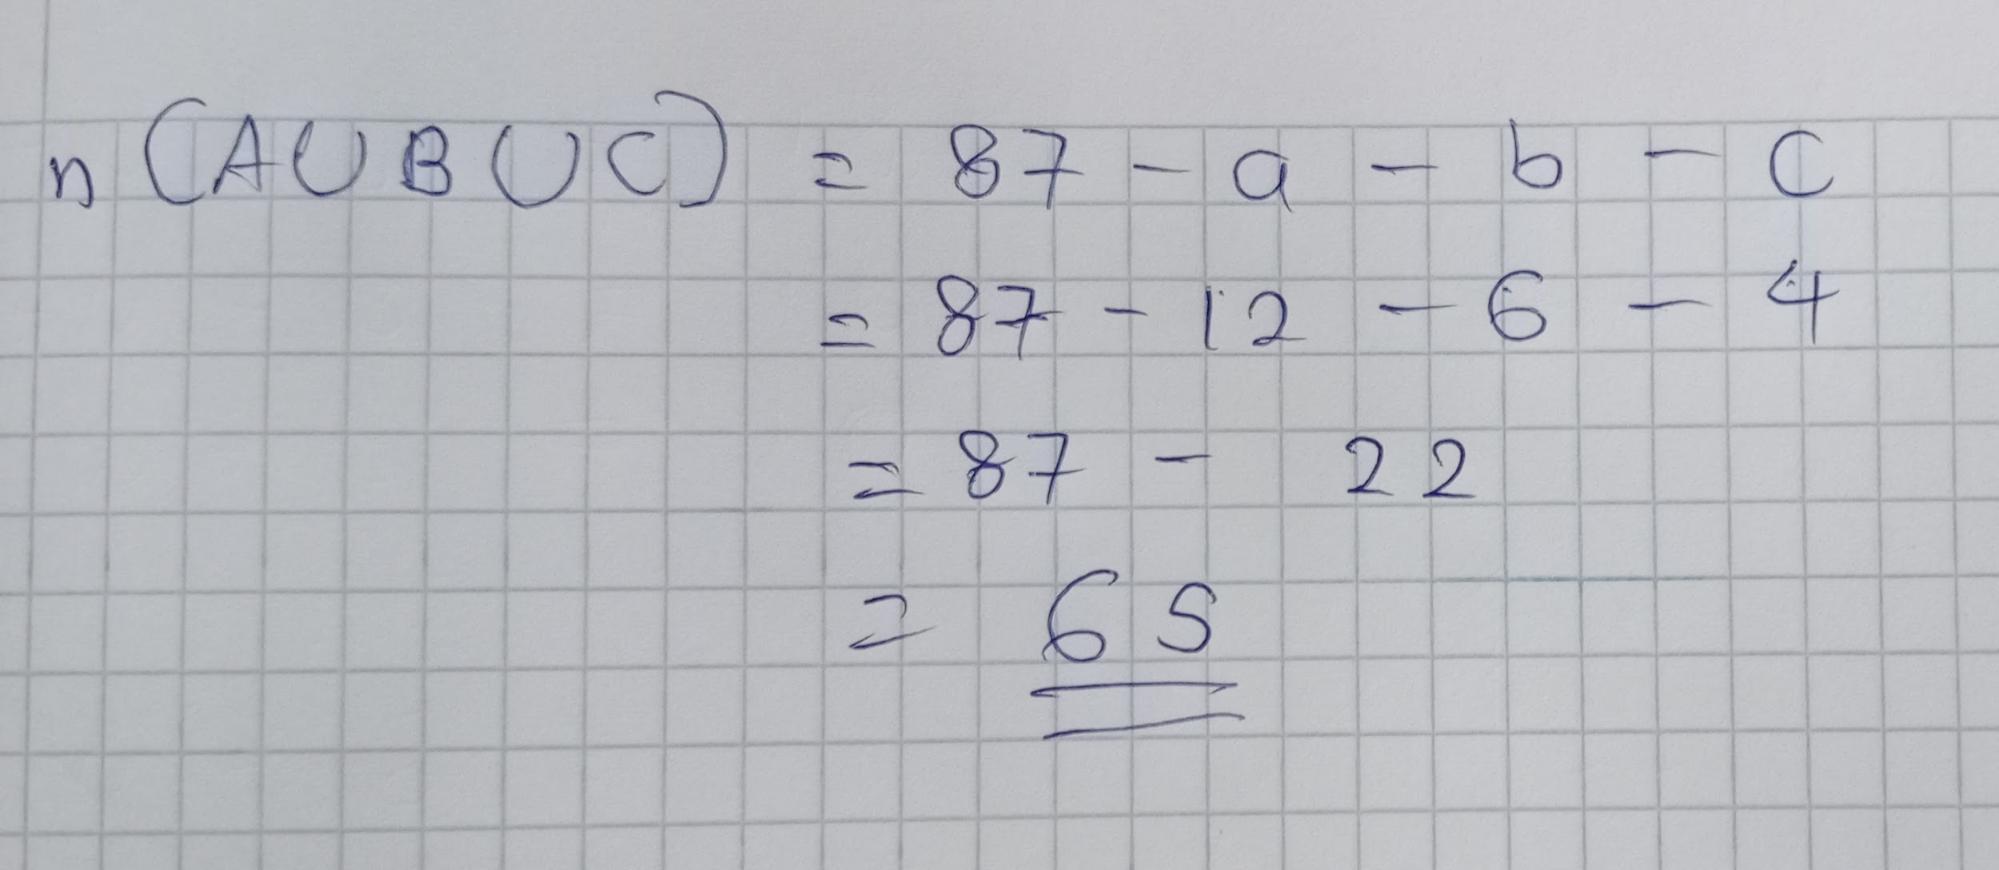 n(A∪B∪C) = 87 - a - b - c
= 87 - 12 - 6 - 4
= 87 - 22
= 65